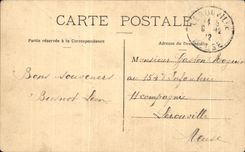 CARTE POSTALE
Partie réservée à la Correspondance
Adresse du Destinataire
Bons Souvenirs
Léon
Monsieur Gaston
au 154 d'Infanterie
Compagnie
Lérouville
Meuse